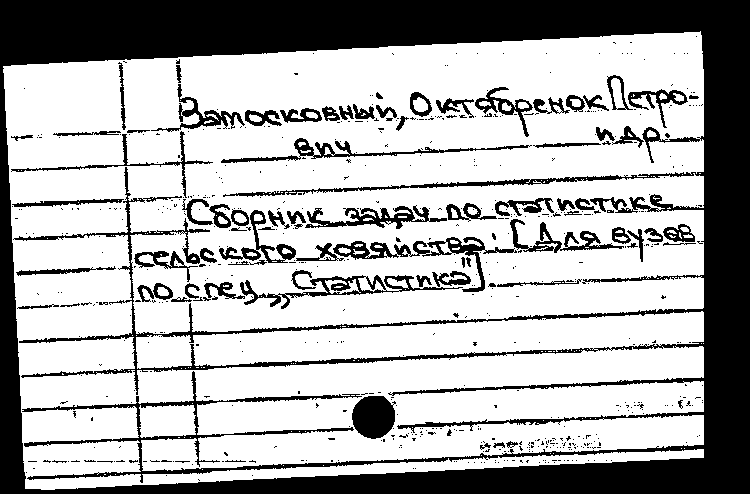 Замосковный, Октябренок Петро-
вич и др.
Сборник задач по статистике
сельского хозяйства: [Для вузов
по спец „Статистика"].